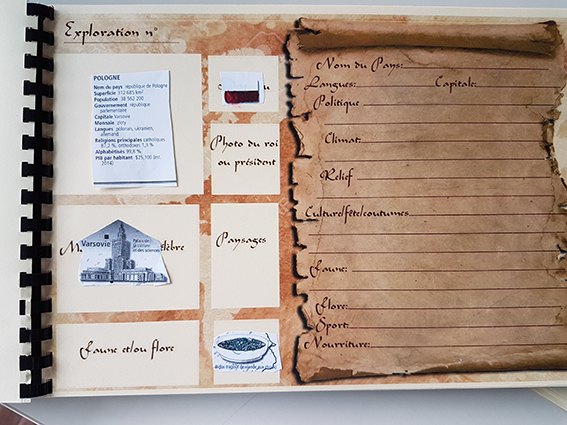 Exploration n°
POLOGNE
Nom du pays république de Pologne
Superficie 312 685 km²
Population 38 562 200
Gouvernement république
parlementaire
Capitale Varsovie
Monnaie zloty
Langues polonais, ukrainien,
allemand
Religions principales catholiques
87,2 %, orthodoxes 1,3 %
Alphabétisés 99,8 %
PIB par habitant $25,100 (est.
2014)
Photo du roi
ou président
Varsovie
Palais de
la culture
et des sciences
Paysages
Faune et/ou flore
Nom du Pays:
Langues: Capitale:
Politique
Climat:
Relief
Culture/fête/coutumes
Faune:
Flore:
Sport:
Nourriture: